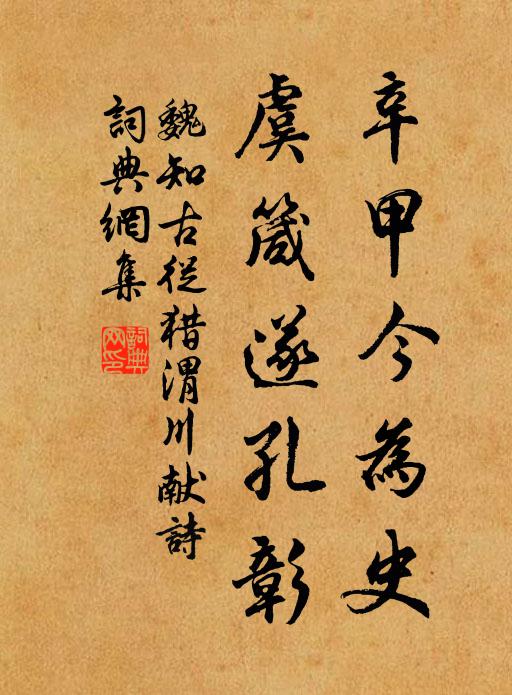 辛甲今為史
虞箴遂孔彰
魏知古從猎渭川献詩
詞典網集
詞典網印